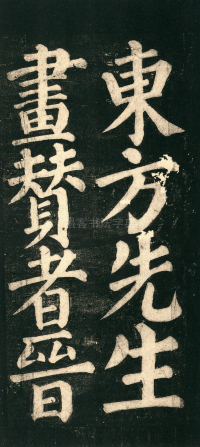 東方先生
畫賛者晉